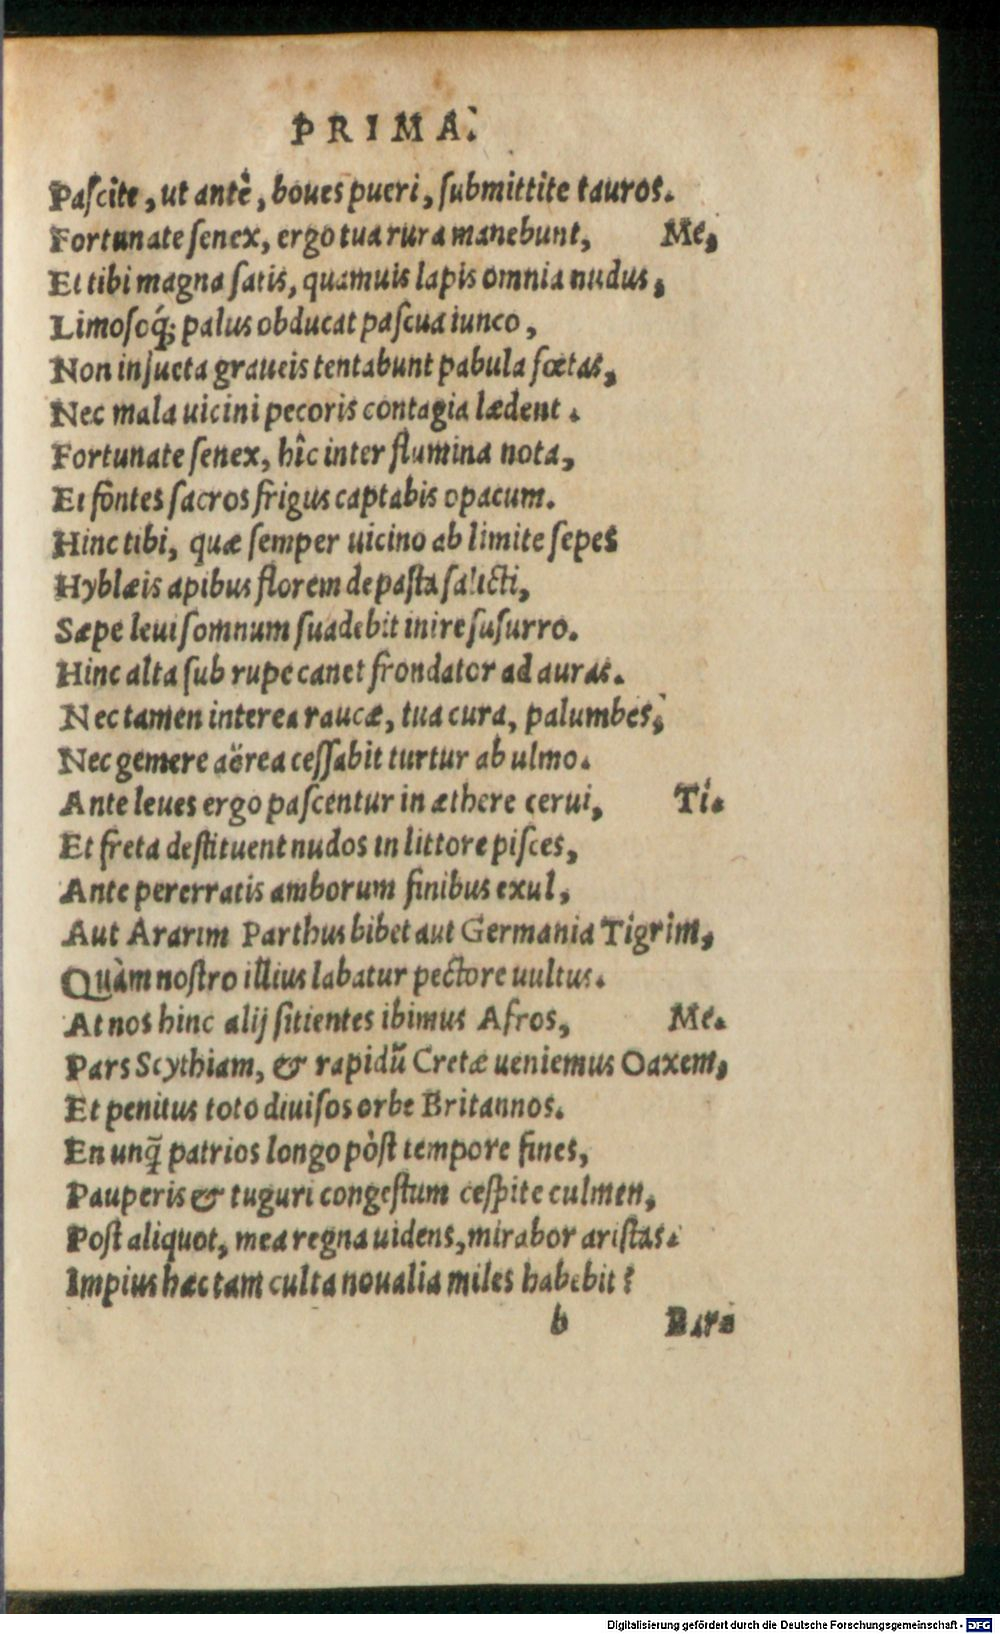 PRIMA.
Pascite, ut antè, boues pueri, submittite tauros.
Fortunate senex, ergo tua rura manebunt, Me,
Et tibi magna satis, quamuis lapis omnia nudus,
Limosoq́; palus obducat pascua iunco,
Non insueta graueis tentabunt pabula fœtas,
Nec mala uicini pecoris contagia lædent.
Fortunate senex, hîc inter flumina nota,
Et fontes sacros frigus captabis opacum.
Hinc tibi, quæ semper uicino ab limite sepes
Hyblæis apibus florem depasta salicti,
Sæpe leui somnum suadebit inire susurro.
Hinc alta sub rupe canet frondator ad auras.
Nec tamen interea raucæ, tua cura, palumbes;
Nec gemere aërea cessabit turtur ab ulmo.
Ante leues ergo pascentur in æthere cerui, Ti.
Et freta destituent nudos in littore pisces,
Ante pererratis amborum finibus exul,
Aut Ararim Parthus bibet aut Germania Tigrim,
Quàm nostro illius labatur pectore uultus.
At nos hinc alij sitientes ibimus Afros, Me.
Pars Scythiam, & rapidũ Cretæ ueniemus Oaxem,
Et penitus toto diuisos orbe Britannos.
En unq̃ patrios longo pòst tempore fines,
Pauperis & tuguri congestum cespite culmen,
Post aliquot, mea regna uidens, mirabor aristas.
Impius hæc tam culta noualia miles habebit?
b Bar=
Digitalisierung gefördert durch die Deutsche Forschungsgemeinschaft - DFG